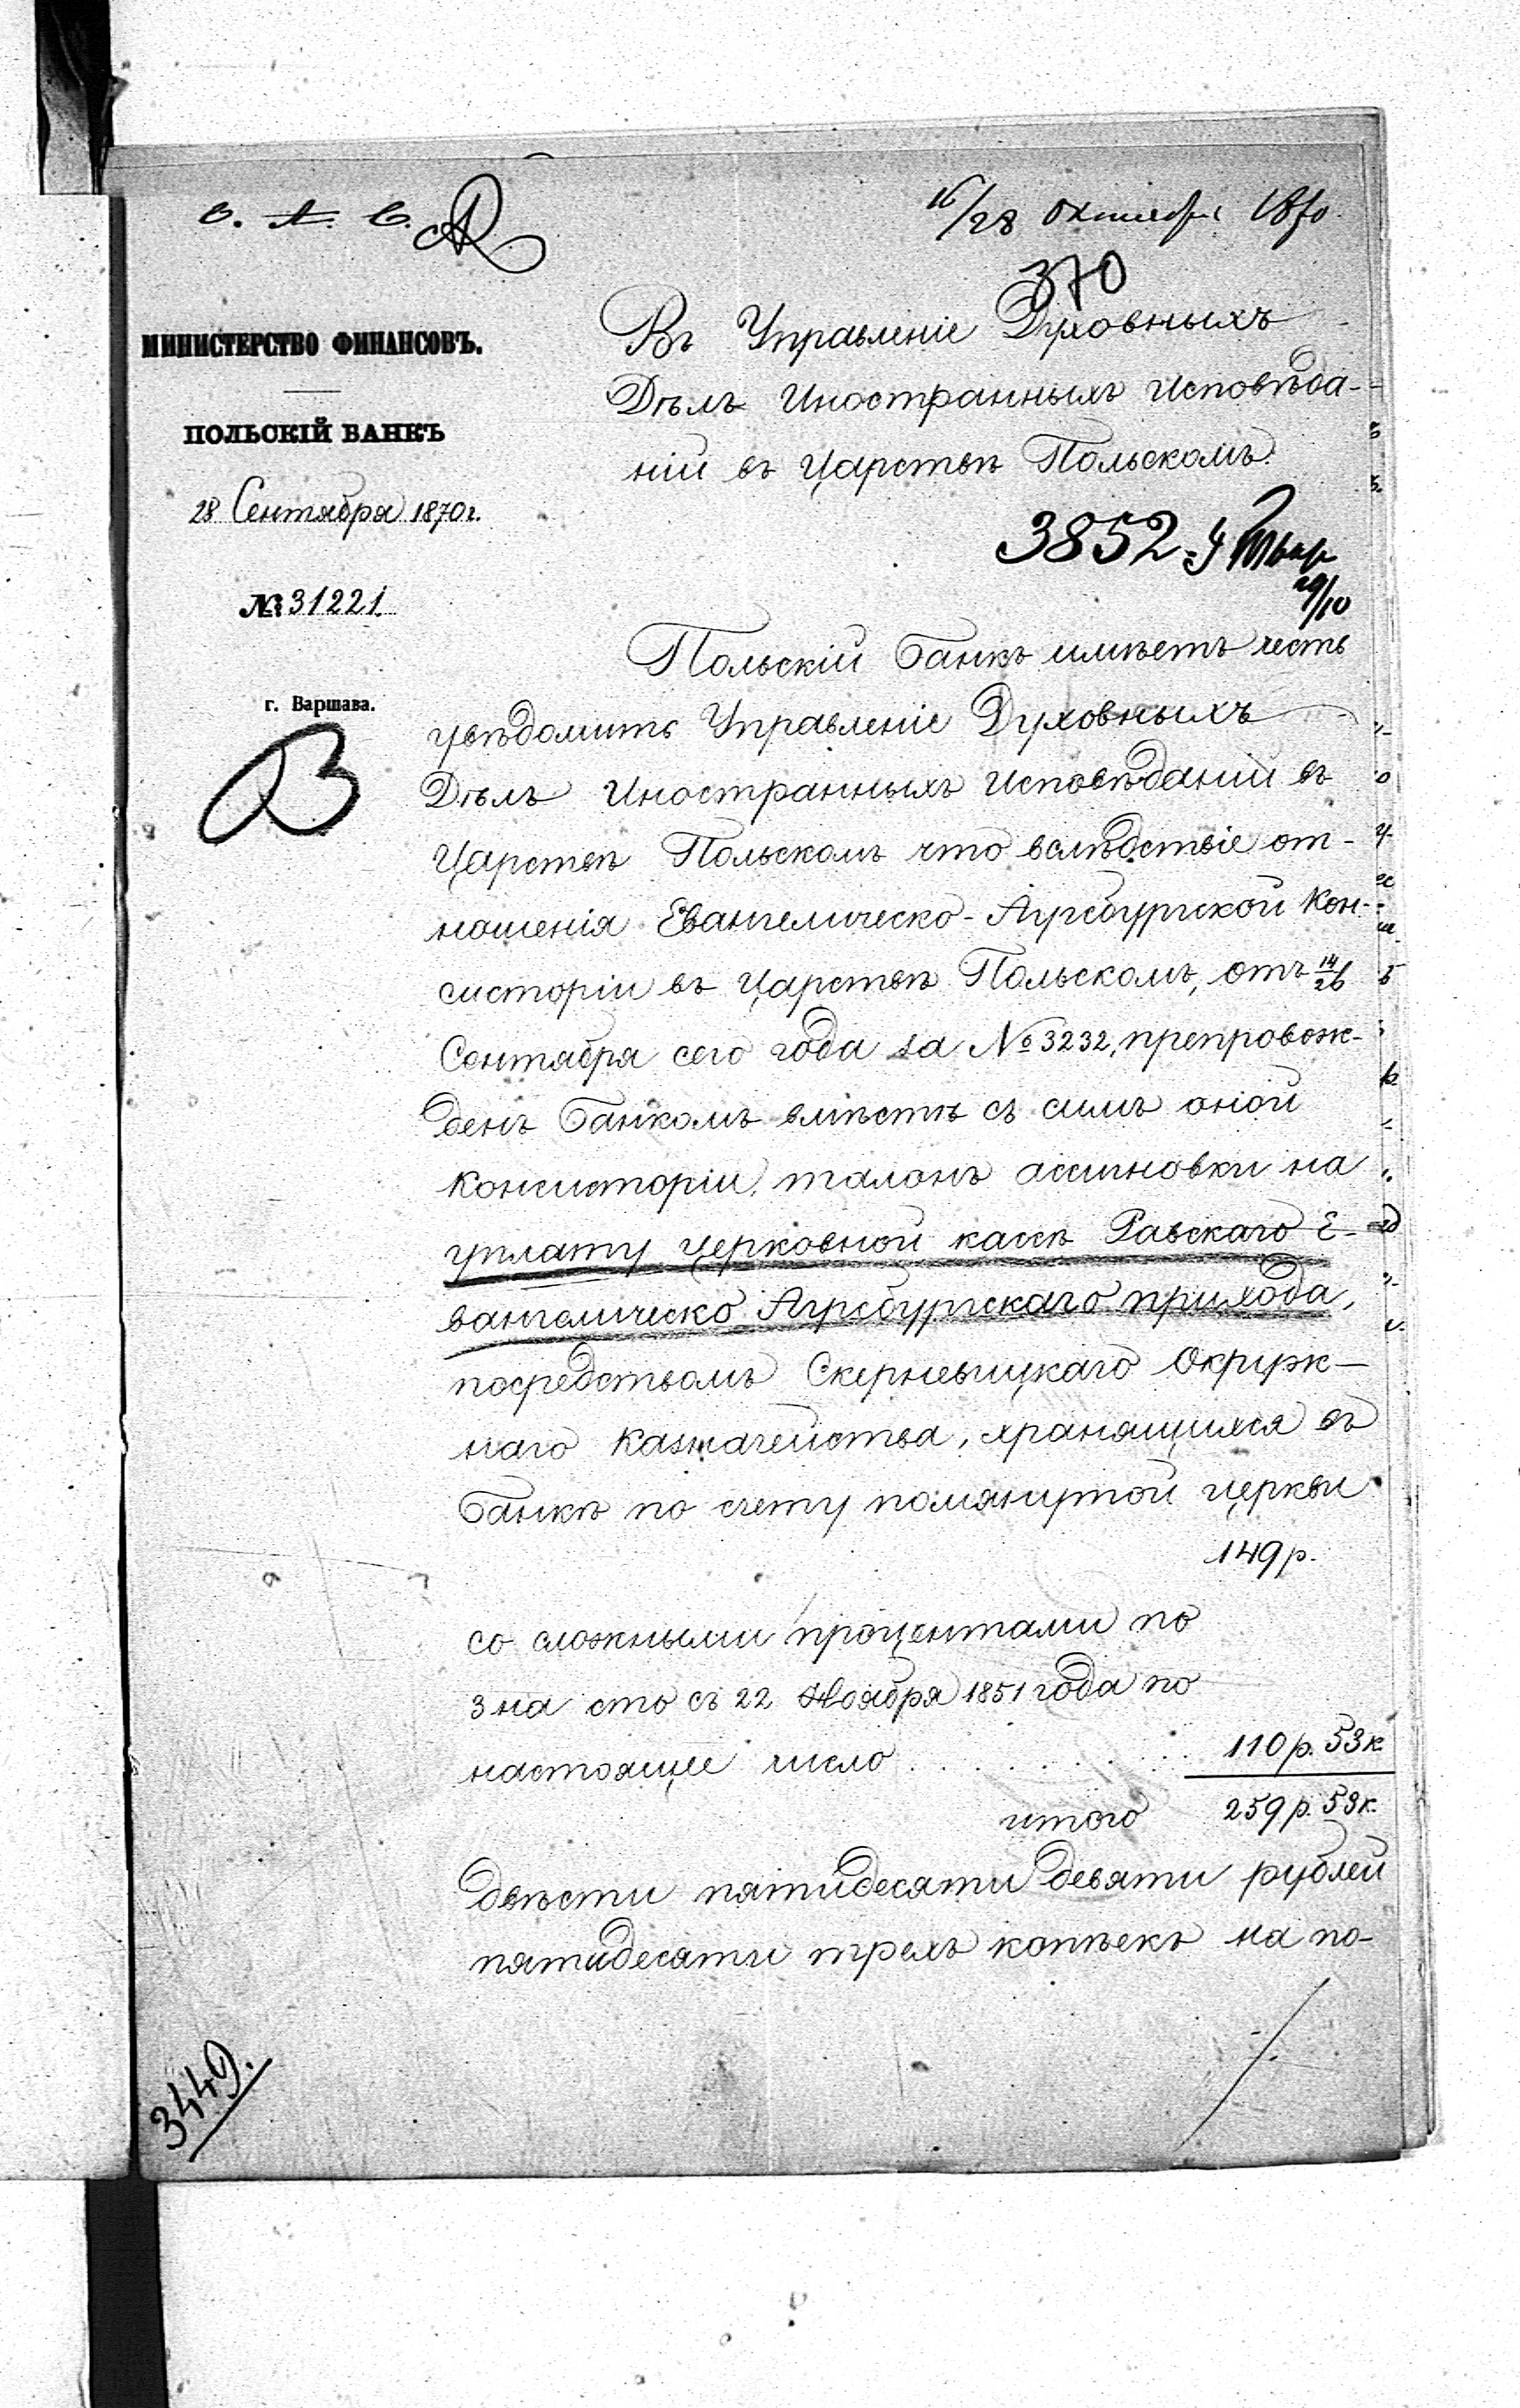 16/28 октября 1870.
370
МИНИСТЕРСТВО ФИНАНСОВЪ.
ПОЛЬСКІЙ БАНКЪ
28 Сентября 1870 г.
№ 31221.
г. Варшава.
Въ Управленіе Духовныхъ
Дѣлъ Иностранныхъ Исповѣда-
ній въ Царствѣ Польскомъ.
3852
29/10
Польскій Банкъ имѣетъ честь
увѣдомить Управленіе Духовныхъ
Дѣлъ Иностранныхъ Исповѣданій въ
Царствѣ Польскомъ что вслѣдствіе от-
ношенія Евангелическо-Аугсбургской Кон-
систоріи въ Царствѣ Польскомъ, отъ 14/26
Сентября сего года за № 3232, препровож-
денъ Банкомъ вмѣстѣ съ симъ оной
Консисторіи, талонъ ассигновки на
уплату церковной кассѣ Равскаго Е-
вангелическо Аугсбургскаго прихода,
посредствомъ Скерневицкаго Окруж-
наго Казначейства, хранящихся въ
Банкѣ по счету помянутой церкви
149 р.
со сложными процентами по
3 на сто съ 22 Ноября 1851 года по
настоящее число . . . . . . . 110 р. 53 к.
итого 259 р. 53 к.
двѣсти пятидесяти девяти рублей
пятидесяти трехъ копѣекъ на по-
3449.